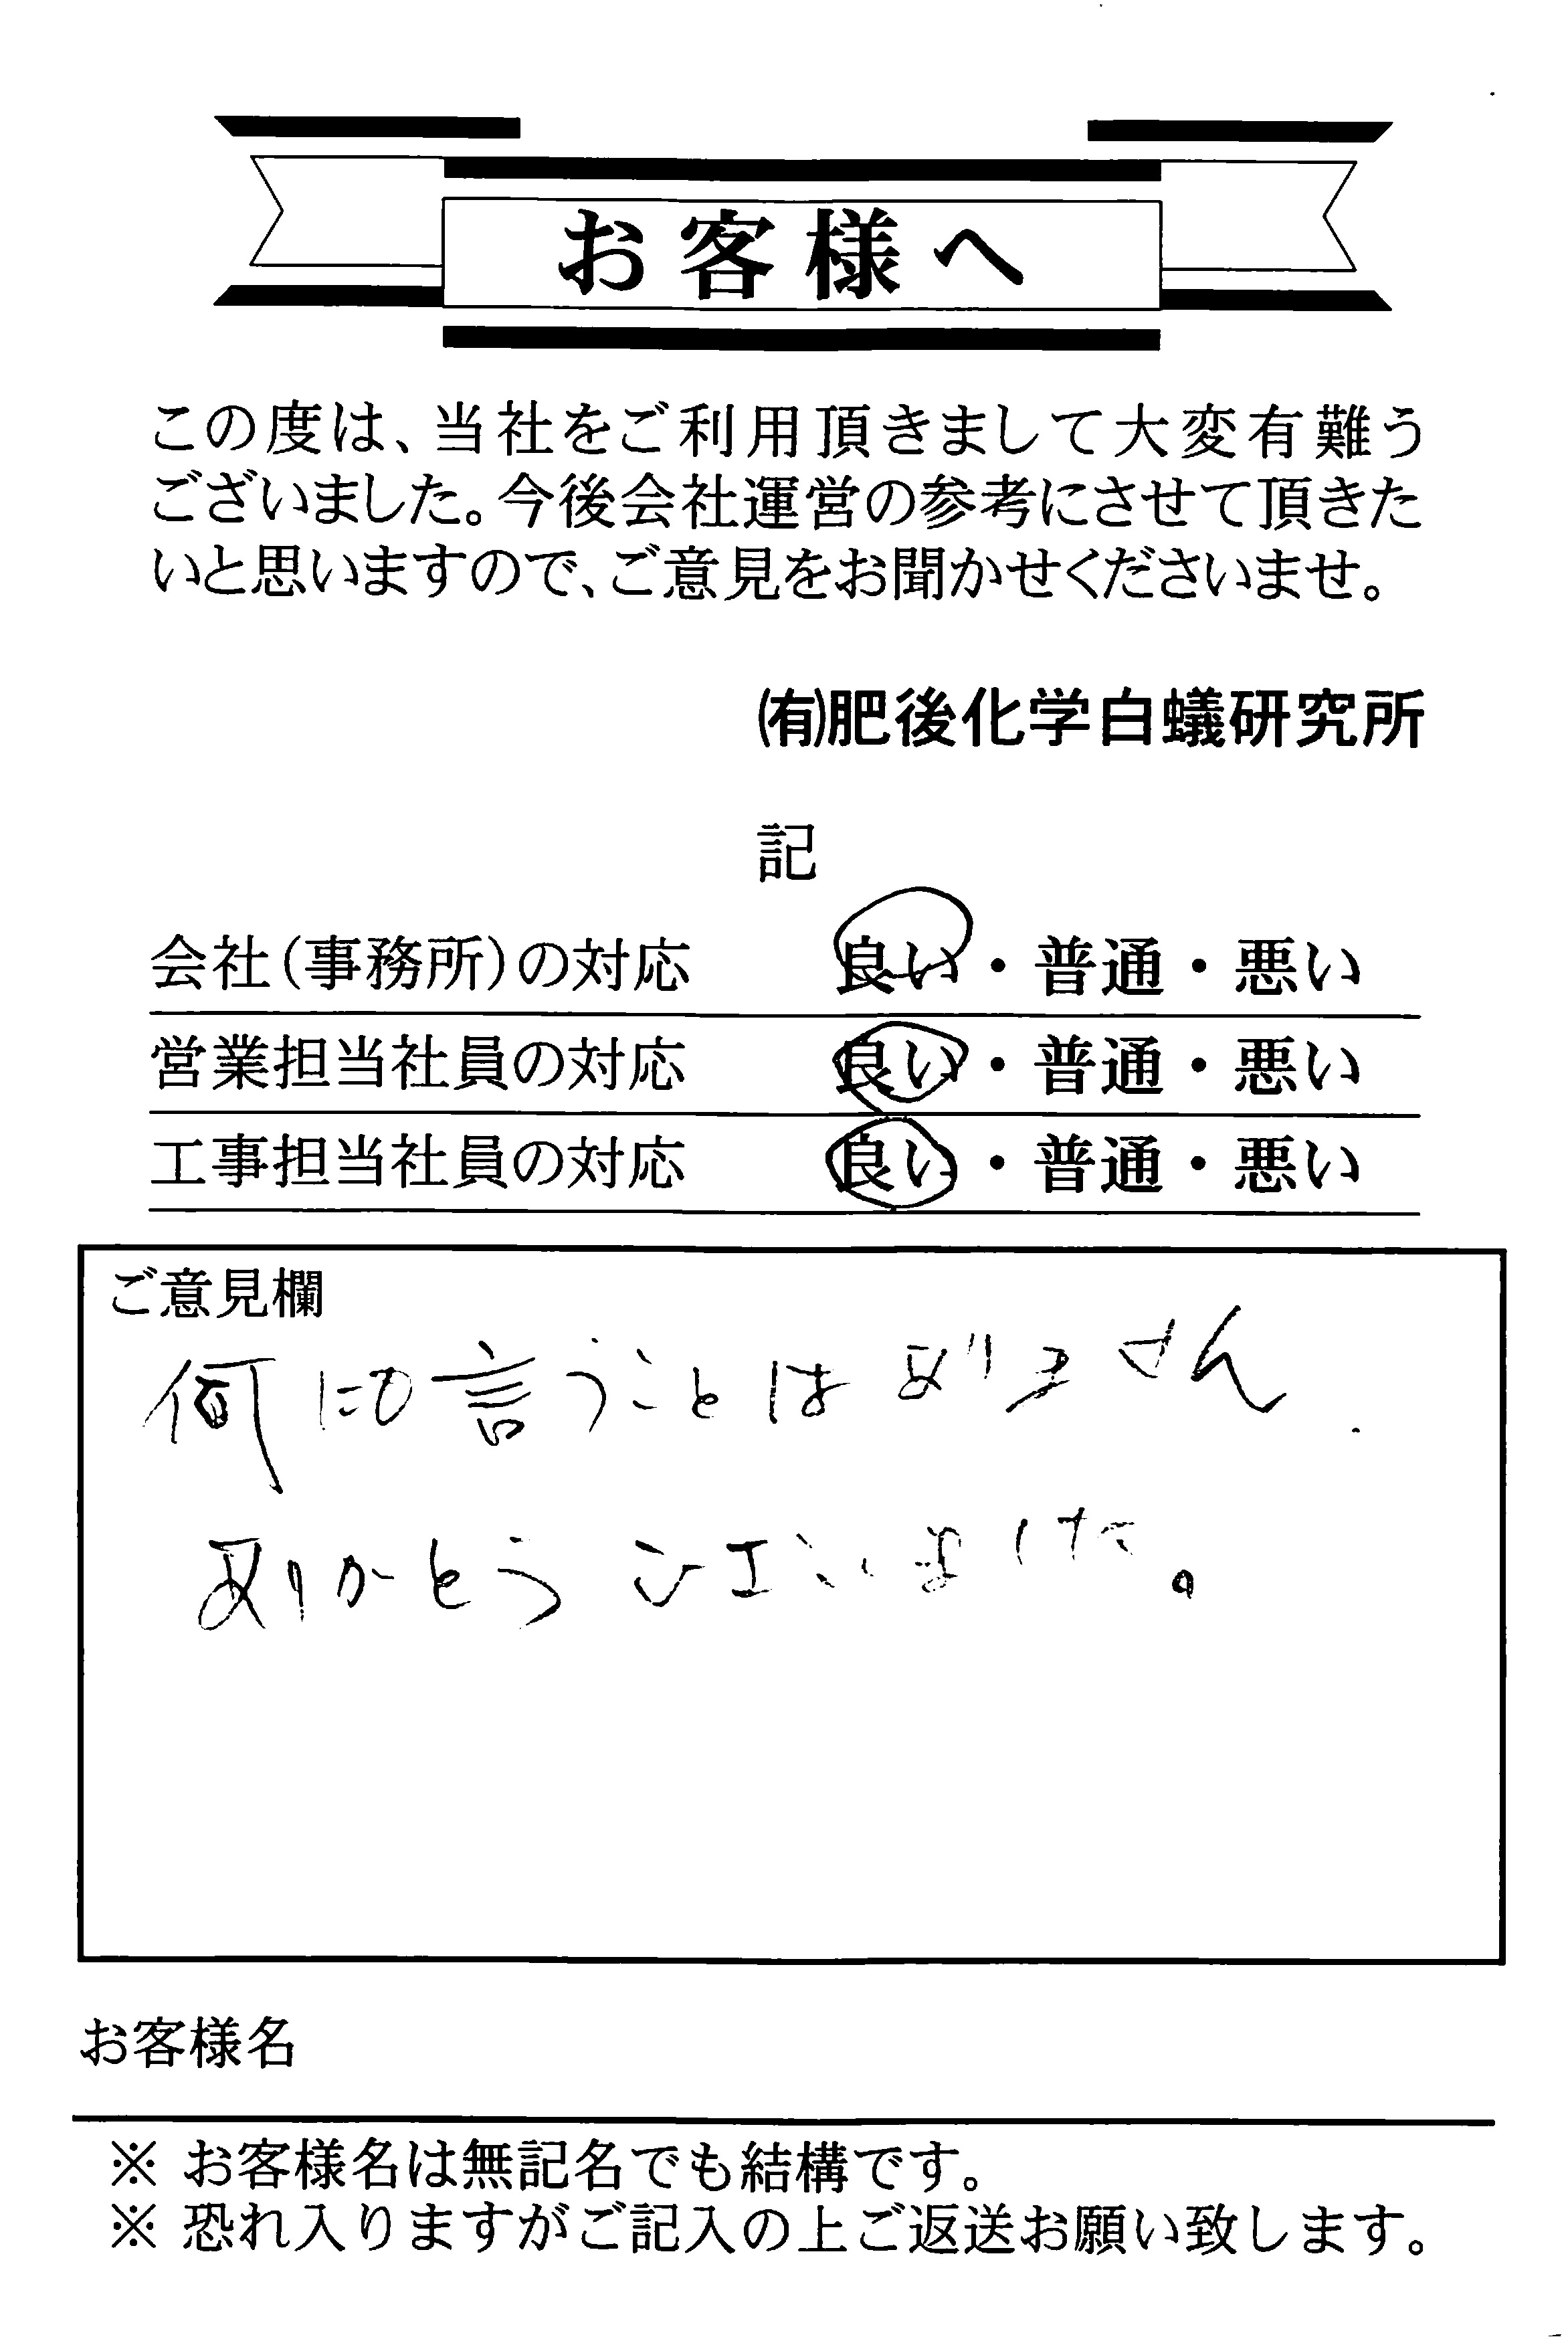 お客様へ
この度は、当社をご利用頂きまして大変有難う
ございました。今後会社運営の参考にさせて頂きた
いと思いますので、ご意見をお聞かせくださいませ。
㈲肥後化学白蟻研究所
記
会社(事務所)の対応 良い・普通・悪い
営業担当社員の対応 良い・普通・悪い
工事担当社員の対応 良い・普通・悪い
ご意見欄
何にも言うことはありません.
ありがとうございました。
お客様名
※ お客様名は無記名でも結構です。
※ 恐れ入りますがご記入の上ご返送お願い致します。